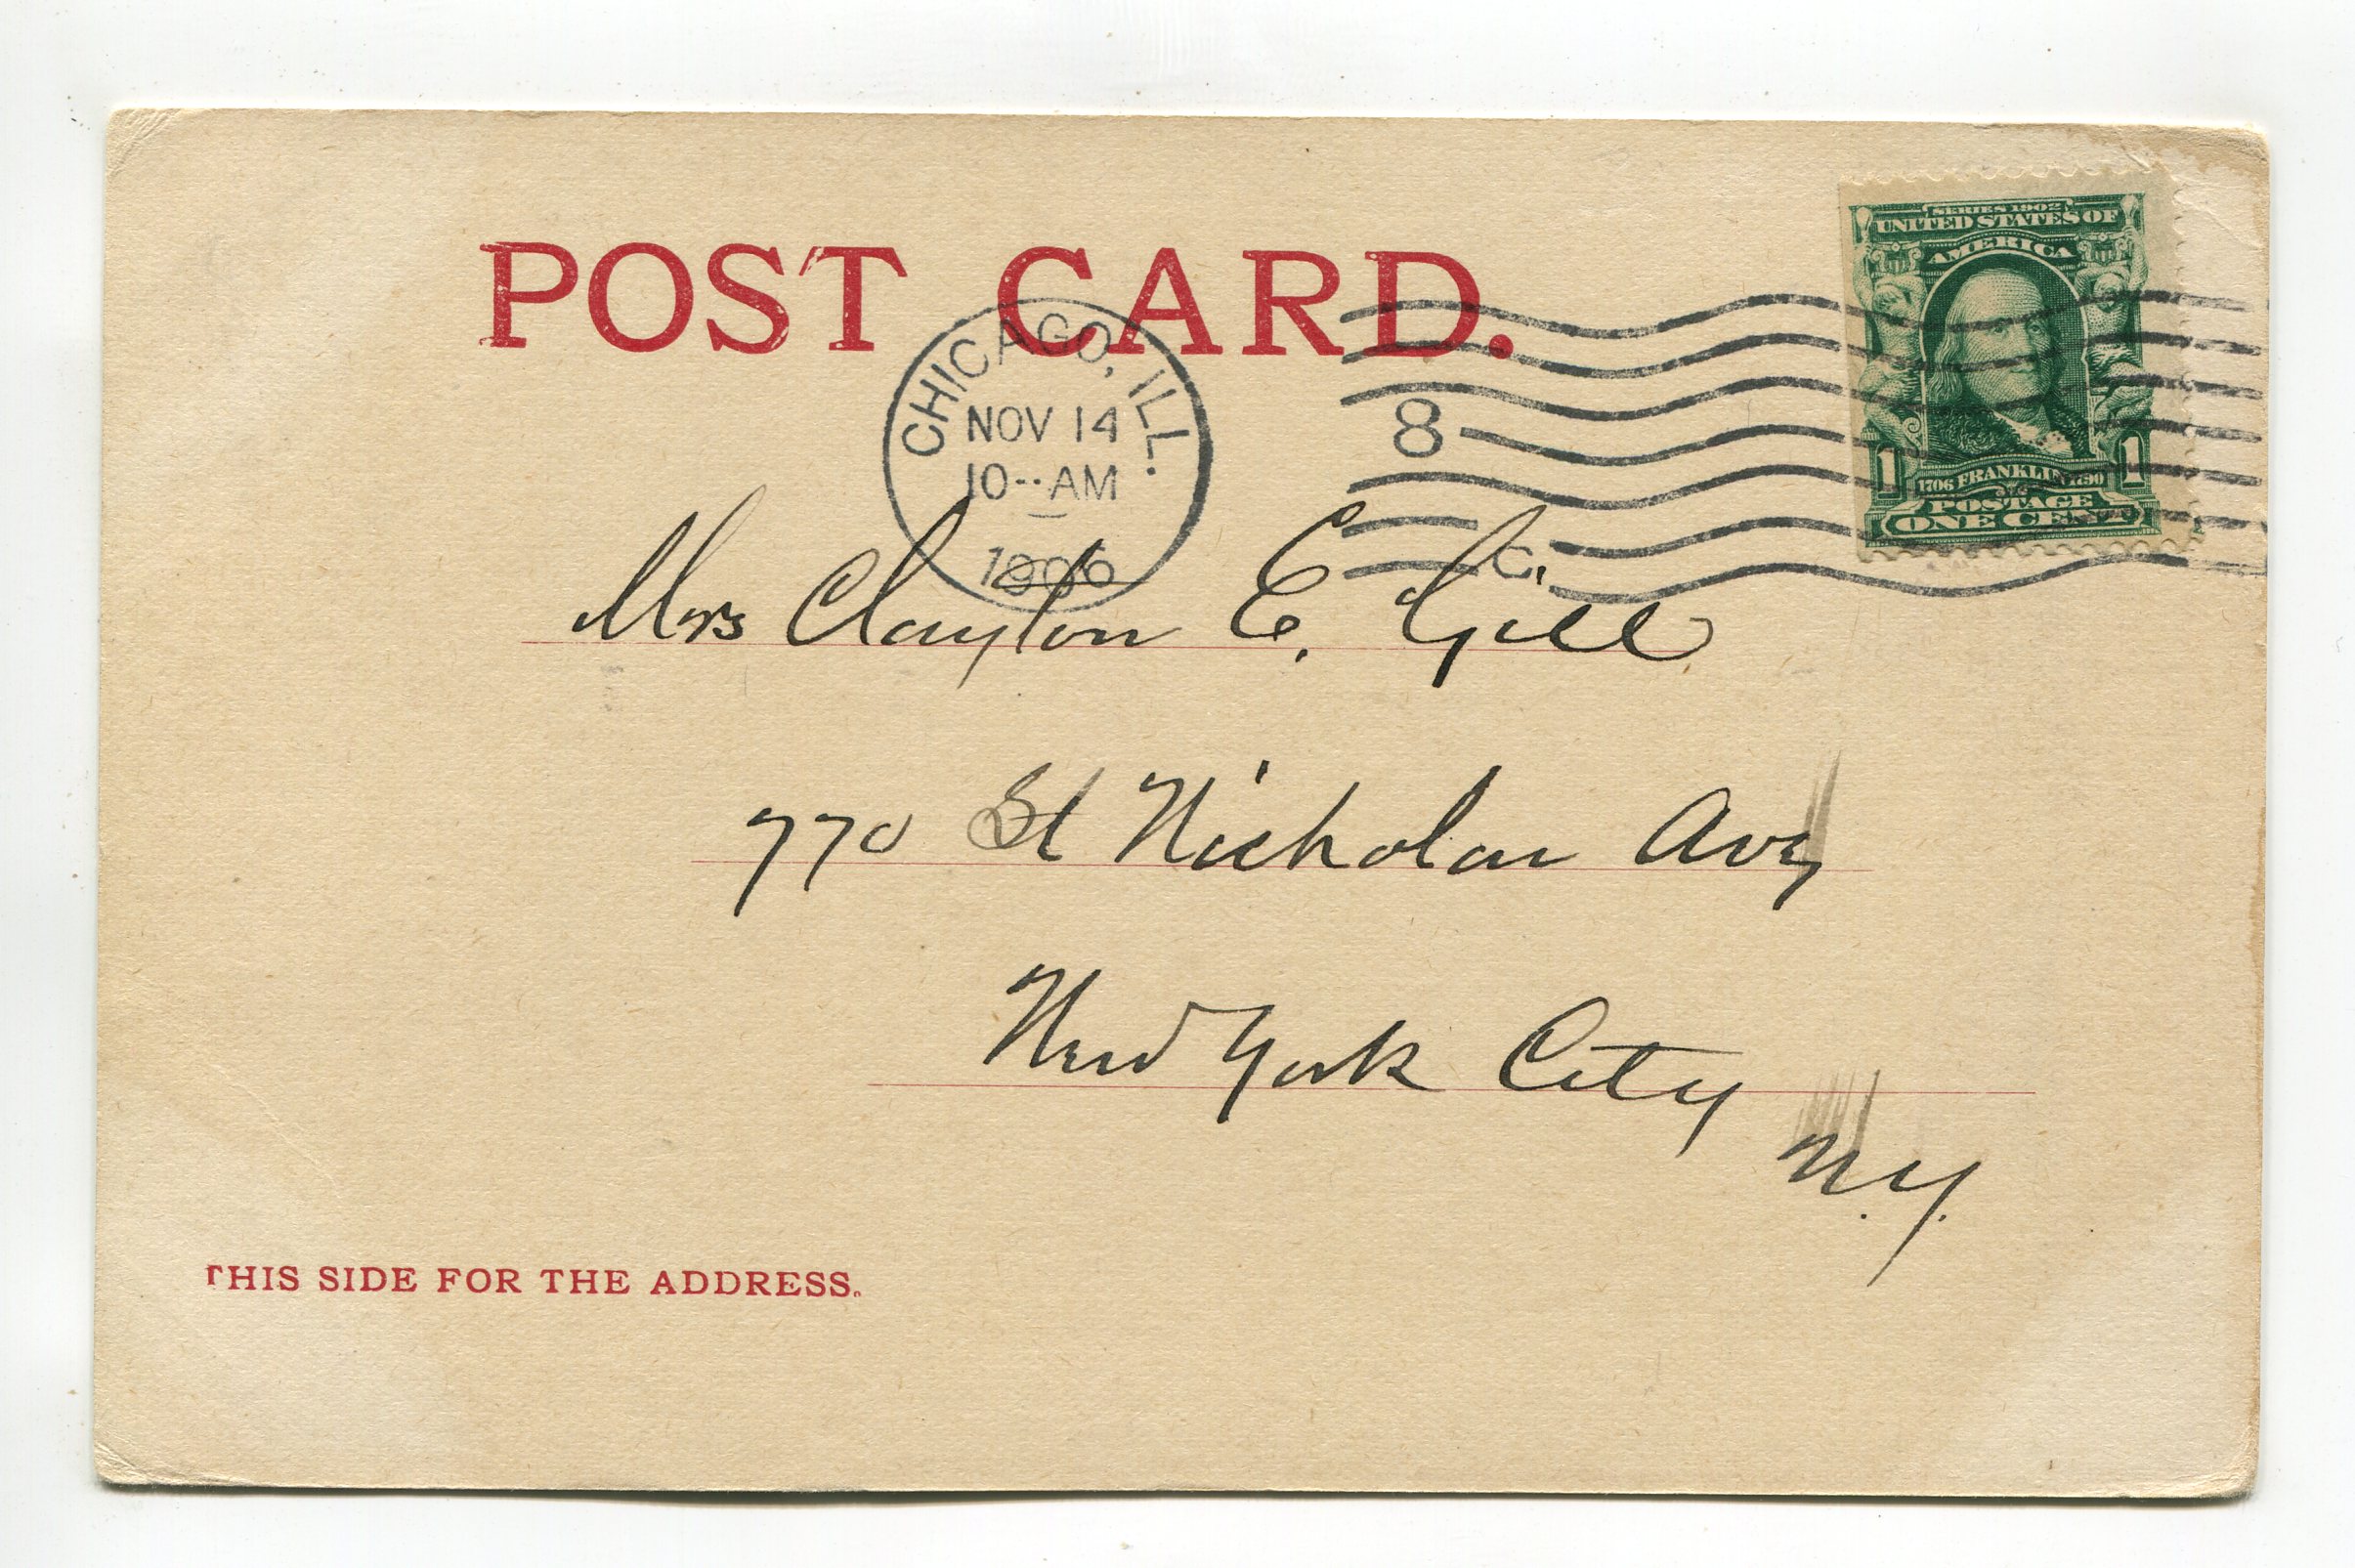 POST CARD.
SERIES 1902
UNITED STATES OF
AMERICA
1706 FRANKLIN 1790
1 1
POSTAGE
ONE CENT
CHICAGO, ILL.
NOV 14
10--AM
1906
8
C.
Mrs Clayton E. Gill
770 St Nicholas Ave
New York City
N.Y.
THIS SIDE FOR THE ADDRESS.